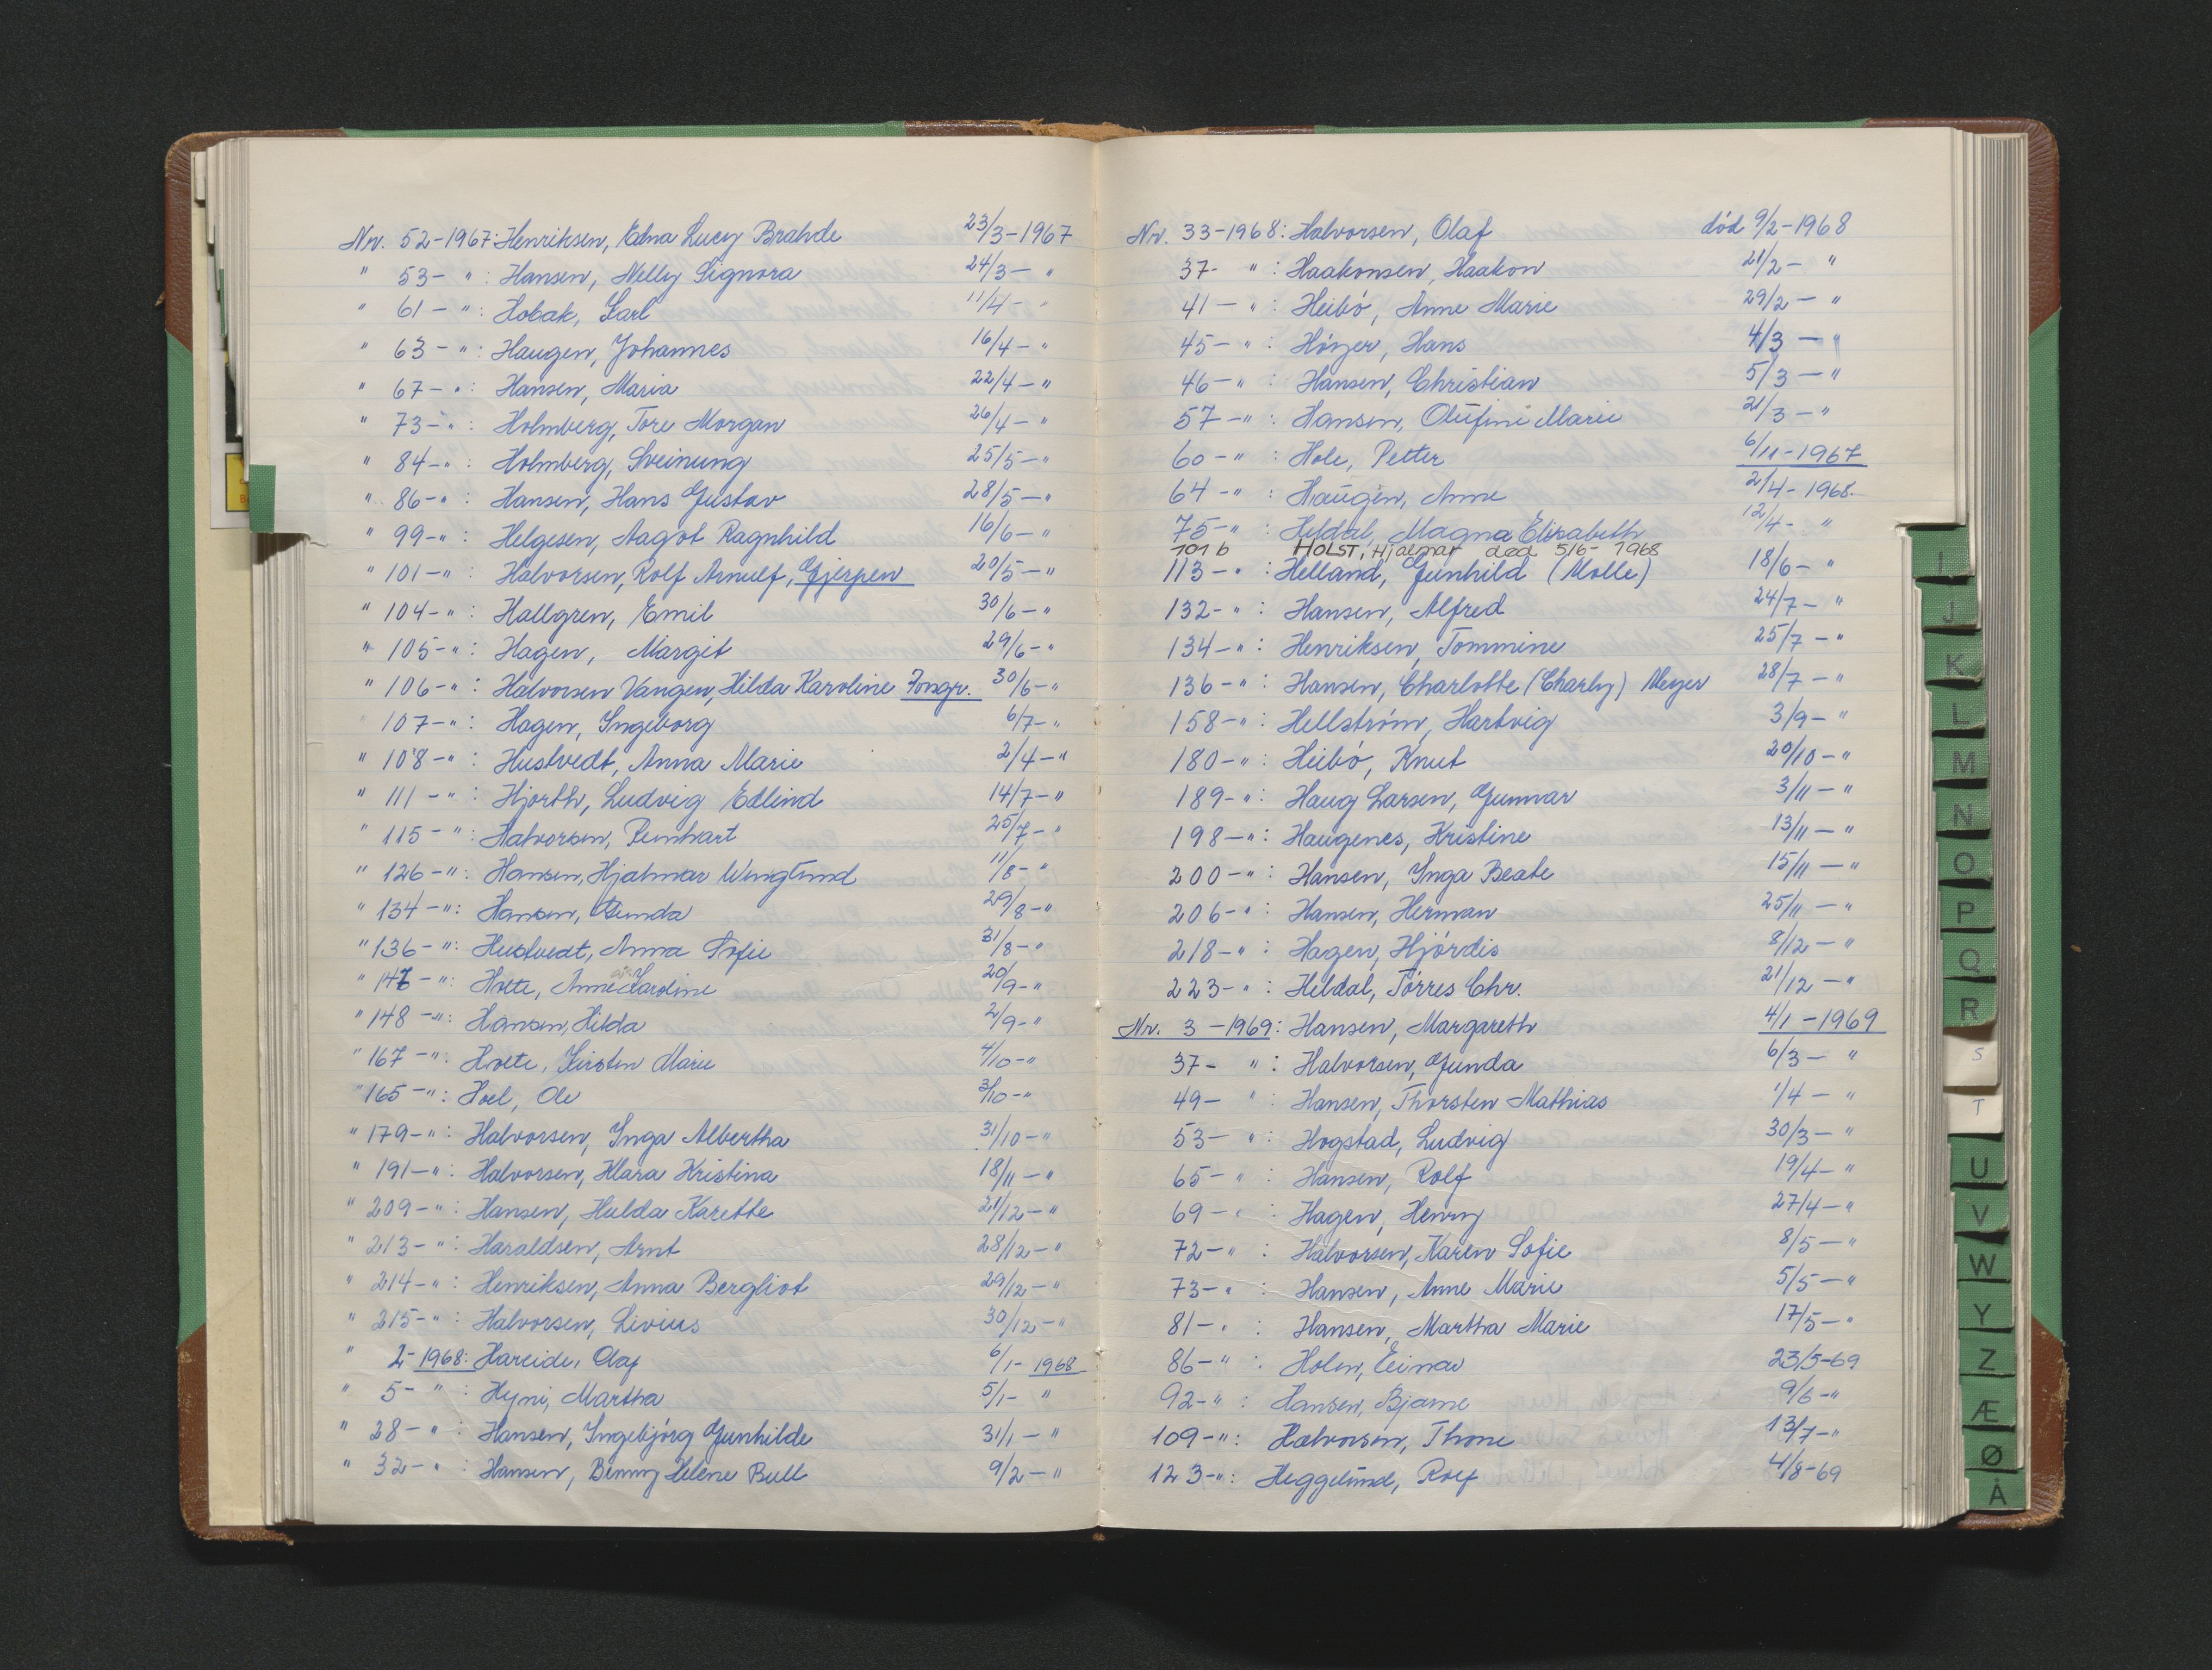 Nr. 52-1967: Henriksen, Edna Lucy Brahde 23/3-1967
" 53- " : Hansen, Nelly Signora 24/3- "
" 61- " : Hobak, Karl 11/4- "
" 63- " : Haugen, Johannes 16/4- "
" 67- " : Hansen, Maria 22/4- "
" 73- " : Holmberg, Tore Morgan 26/4- "
" 84- " : Holmberg, Sveinung 25/5- "
" 86- " : Hansen, Hans Gustav 28/5- "
" 99- " : Helgesen, Aagot Ragnhild 16/6- "
" 101- " : Halvorsen, Rolf Arnulf, Gjerpen 20/5- "
" 104- " : Hallgren, Emil 30/6- "
" 105- " : Hagen, Margit 29/6- "
" 106- " : Halvorsen Vangen, Hilda Karoline Porsgr. 30/6- "
107- " : Hagen, Ingeborg 6/7- "
" 108- " : Hustvedt, Anna Marie 2/4- "
" 111- " : Hjorth, Ludvig Edlind 14/7- "
" 115- " : Halvorsen, Reinhart 25/7- "
" 126- " : Hansen, Hjalmar Winglund 11/8- "
" 134- " : Hansen, Gunda 29/8- "
" 136- " : Hustvedt, Anna Sofie 31/8- "
" 147- " : Hvete, Anne Karoline 20/9- "
" 148- " : Hansen, Hilda 2/9- "
" 167- " : Hvete, Kirsten Marie 4/10- "
" 165- " : Hoel, Ole 3/10- "
" 179- " : Halvorsen, Inga Albertha 31/10- "
" 191- " : Halvorsen, Klara Kristina 18/11- "
" 209- " : Hansen, Hulda Karette 21/12- "
" 213- " : Haraldsen, Arnt 28/12- "
" 214- " : Henriksen, Anna Bergliot 29/12- "
" 215- " : Halvorsen, Livius 30/12- "
" 2-1968: Hareide, Olaf 6/1-1968
" 5- " : Hyni, Martha 5/1- "
" 28- " : Hansen, Ingebjörg Gunhilde 31/1- "
" 32- " : Hansen, Benny Helene Bull 9/2- "
Nr. 33-1968: Halvorsen, Olaf död 9/2-1968
37- " : Haakonsen, Haakon 21/2- "
41- " : Heibö, Anne Marie 29/2- "
45- " : Höyer, Hans 4/3- "
46- " : Hansen, Christian 5/3- "
57- " : Hansen, Olufine Marie 21/3- "
60- " : Hole, Petter 6/11-1967
64- " : Haugen, Anne 2/4-1968.
75- " : Heldal, Magna Elisabeth 12/4- "
101 b HOLST, Hjalmar død 5/6-1968
113- " : Helland, Gunhild (Molle) 18/6- "
132- " : Hansen, Alfred 24/7- "
134- " : Henriksen, Tommine 25/7- "
136- " : Hansen, Charlotte (Charly) Meyer 28/7- "
158- " : Hellström, Hartvig 3/9- "
180- " : Heibö, Knut 20/10- "
189- " : Haug Larsen, Gunnar 3/11- "
198- " : Haugenes, Kristine 13/11- "
200- " : Hansen, Inga Beate 15/11- "
206- " : Hansen, Herman 25/11- "
218- " : Hagen, Hjördis 8/12- "
223- " : Heldal, Törres Chr. 21/12- "
Nr. 3-1969: Hansen, Margareth 4/1-1969
37- " : Halvorsen, Gunda 6/3- "
49- " : Hansen, Thorsten Mathias 1/4- "
53- " : Hogstad, Ludvig 30/3- "
65- " : Hansen, Rolf 19/4- "
69- " : Hagen, Henry 27/4- "
72- " : Halvorsen, Karen Sofie 8/5- "
73- " : Hansen, Anne Marie 5/5- "
81- " : Hansen, Martha Marie 17/5- "
86- " : Holen, Einar 23/5-69
92- " : Hansen, Bjarne 9/6- "
109- " : Halvorsen, Thone 13/7- "
123- " : Heggelund, Rolf 4/8-69
I
J
K
L
M
N
O
P
Q
R
S
T
U
V
W
Y
Z
Æ
Ø
Å